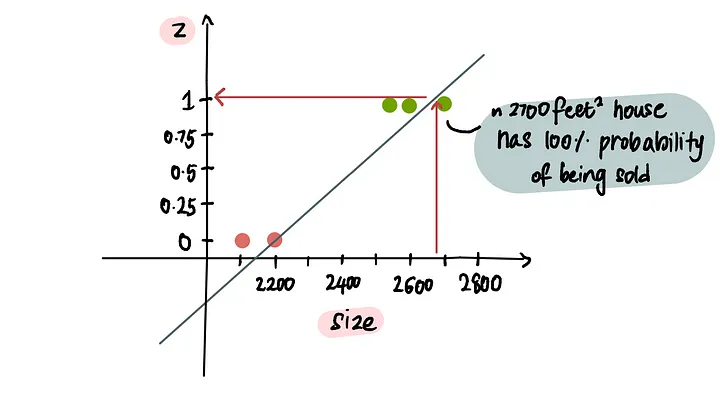 z
1
0.75
0.5
0.25
0
2200 2400 2600 2800
size
2700 feet² house
has 100% probability
of being sold